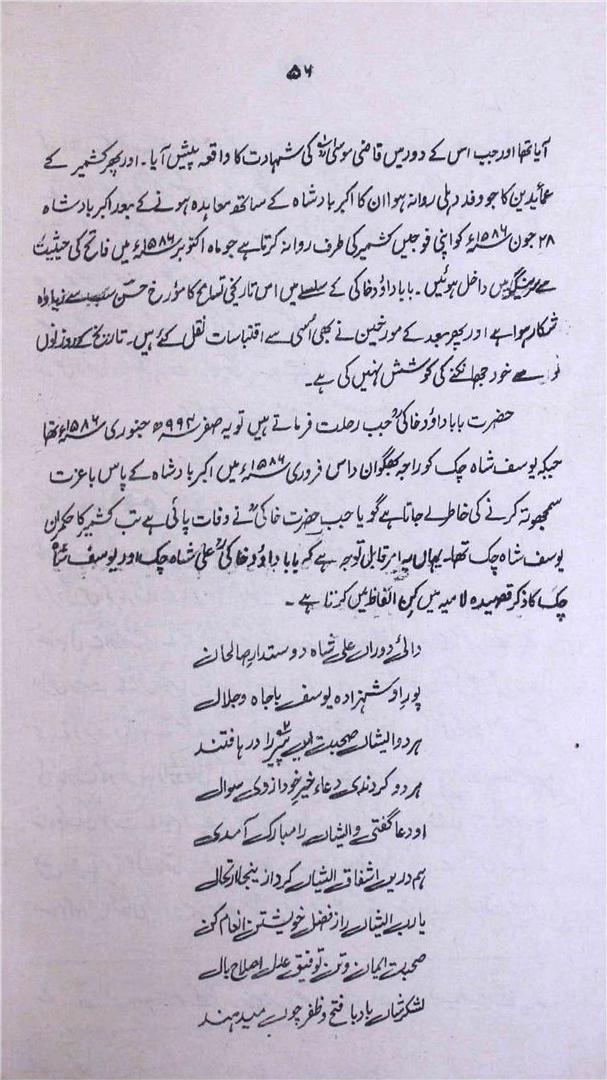 ۵۶
آیا تھا اور جب اس کے دور میں قاضی موسیٰ کی شہادت کا واقعہ پیش آیا۔ اور پھر کشمیر کے
عمائیدین کا جو وفد دہلی روانہ ہوا ان کا اکبر بادشاہ کے ساتھ معاہدہ ہونے کے بعد اکبر بادشاہ
۲۸ جون ۱۵۸۶ء کو اپنی فوجیں کشمیر کی طرف روانہ کرتا ہے جو ماہ اکتوبر ۱۵۸۶ء میں فاتح کی حیثیت
سے سرینگر میں داخل ہوئیں۔ بابا داؤد خاکی کے سلسلے میں اس تاریخی تسامح کا مؤرخ حسن سب سے زیادہ
شکار ہوا ہے اور پھر بعد کے مورخین نے بھی اُسی سے اقتباسات نقل کئے ہیں۔ تاریخ کے روزنوں
سے خود جھانکنے کی کوشش نہیں کی ہے۔
حضرت بابا داؤد خاکیؒ جب رحلت فرماتے ہیں تو یہ صفر ۹۹۴ھ جنوری ۱۵۸۶ء تھا
جبکہ یوسف شاہ چک کو راجہ بھگوان داس فروری ۱۵۸۶ء میں اکبر بادشاہ کے پاس باعزت
سمجھوتہ کرنے کی خاطر لے جاتا ہے گویا جب حضرت خاکیؒ نے وفات پائی ہے تب کشمیر کا حکمران
یوسف شاہ چک تھا۔ یہاں یہ امر قابل توجہ ہے کہ بابا داؤد خاکیؒ علی شاہ چک اور یوسف شاہ
چک کا ذکر قصیدہ لامیہ میں کن الفاظ میں کرتا ہے۔
والئ دوراں علی شاہ دوستدار صالحان
پور او شہزادہ یوسف باجاہ وجلال
ہر دو ایشاں صحبت ایں پیر را دریافتند
ہر دو کردندی دعاء خیر خود ازوی سوال
او دعا گفتی و ایشاں را مبارک آمدی
ہم دریں اشفاق ایشاں کرد ازینجا ارتحال
یارب ایشاں را ز فضل خویشتن انعام کن
صحبت ایمان و تن توفیق عدل اصلاح بال
لشکر شاں باد با فتح و ظفر چوں میدہند